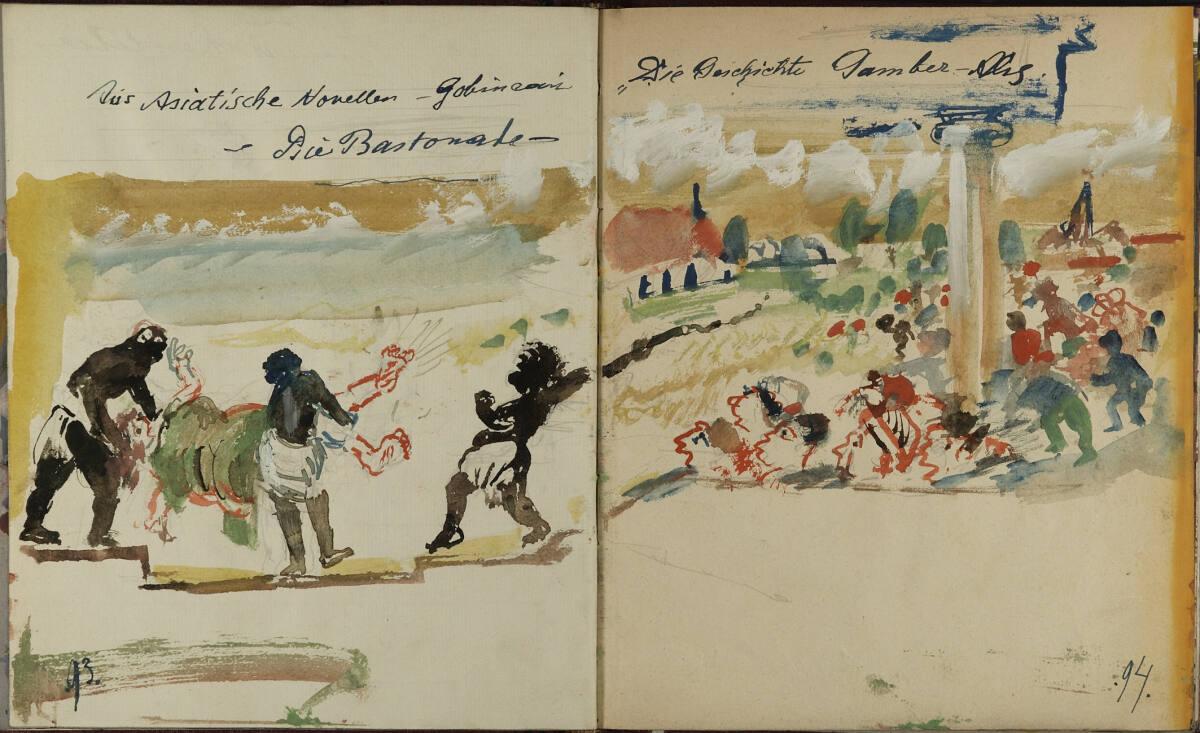 Aus Asiatische Novellen – Gobineau
– Die Bastonade –
93.
„Die Geschichte Gamber-Alys.
.94.